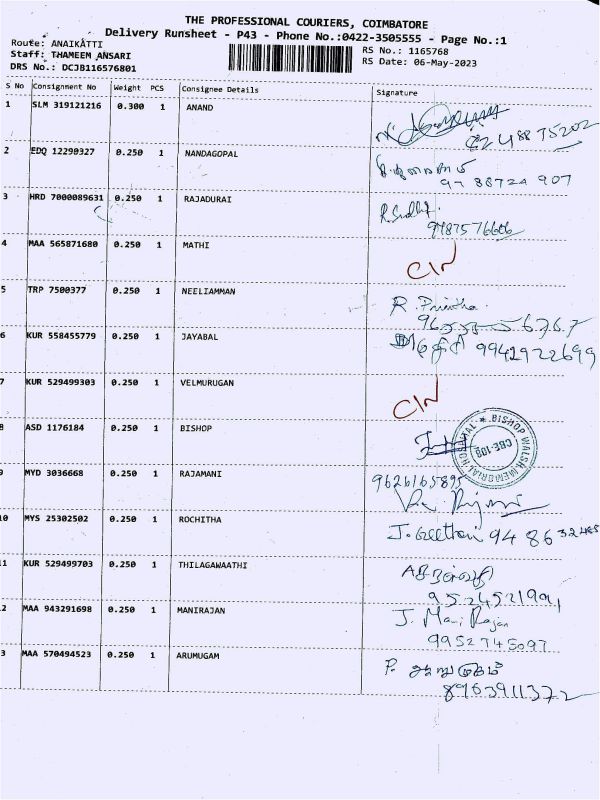 THE PROFESSIONAL COURIERS, COIMBATORE
Delivery Runsheet - P43 - Phone No.:0422-3505555 - Page No.:1
Route: ANAIKATTI
Staff: THAMEEM ANSARI
DRS No.: DCJB116576801
RS No.: 1165768
RS Date: 06-May-2023
S No Consignment No Weight PCS Consignee Details Signature
1 SLM 319121216 0.300 1 ANAND
2 EDQ 12290327 0.250 1 NANDAGOPAL
3 HRD 7000089631 0.250 1 RAJADURAI
9487576606
4 MAA 565871680 0.250 1 MATHI
5 TRP 7500377 0.250 1 NEELIAMMAN R. Prietha
6 KUR 558455779 0.250 1 JAYABAL 9942922699
7 KUR 529499303 0.250 1 VELMURUGAN
8 ASD 1176184 0.250 1 BISHOP
BISHOP WALSH MEMORIAL HOSPITAL
CBE-108
9 MYD 3036668 0.250 1 RAJAMANI 9626165895
10 MYS 25302502 0.250 1 ROCHITHA J. Geetha
11 KUR 529499703 0.250 1 THILAGAWAATHI
12 MAA 943291698 0.250 1 MANIRAJAN J. Mani Rajan
9952745097
3 MAA 570494523 0.250 1 ARUMUGAM P. ஆறுமுகம்
8963911372